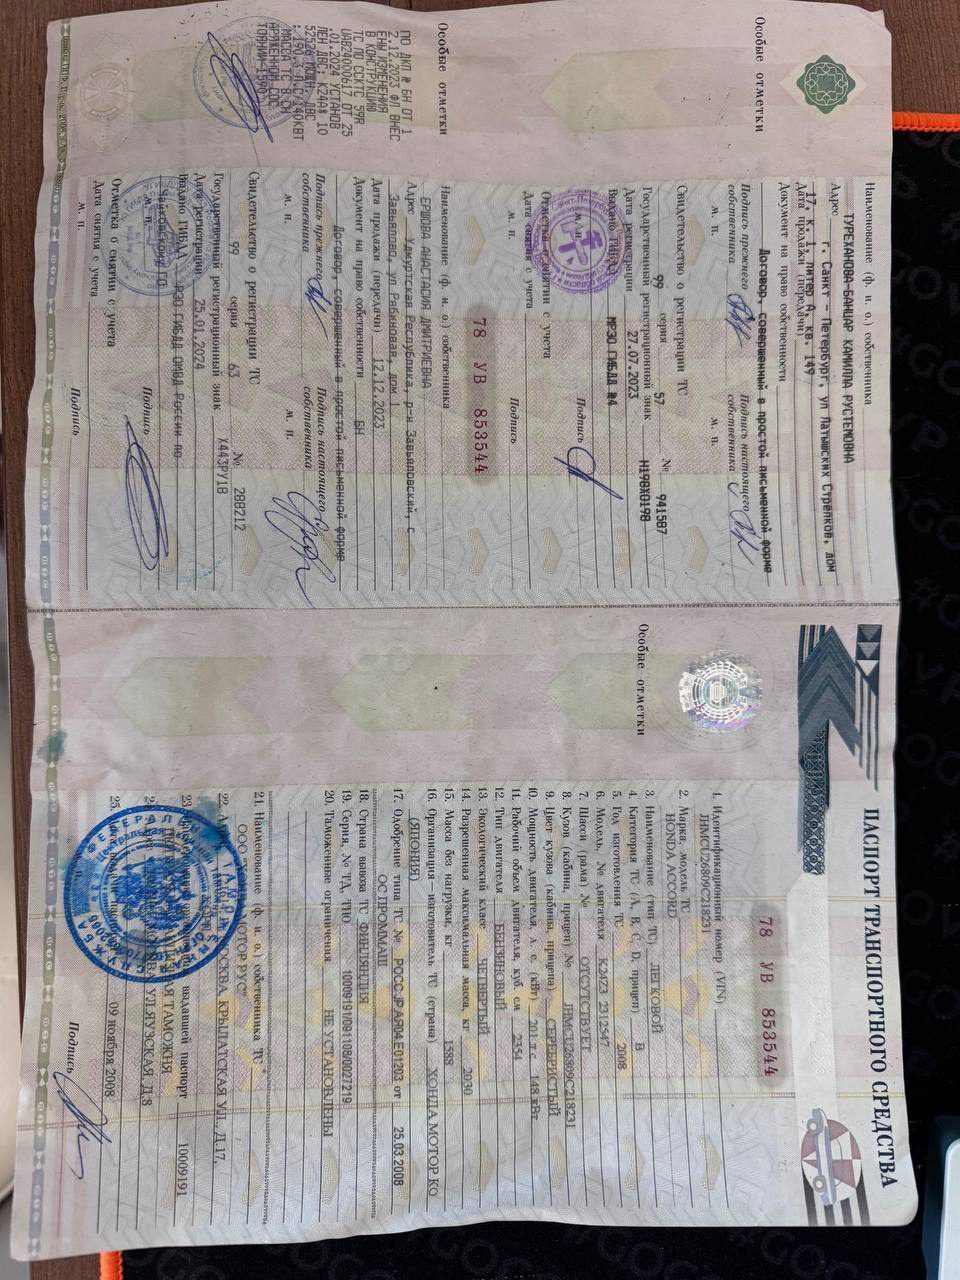 ПАСПОРТ ТРАНСПОРТНОГО СРЕДСТВА
78 УВ 853544
1. Идентификационный номер (VIN)
JHMCU26809C218231
2. Марка, модель ТС
HONDA ACCORD
3. Наименование (тип ТС) ЛЕГКОВОЙ
4. Категория ТС (A, B, C, D, прицеп) B
5. Год изготовления ТС 2008
6. Модель, № двигателя K24Z3 2312547
7. Шасси (рама) № ОТСУТСТВУЕТ
8. Кузов (кабина, прицеп) № JHMCU26809C218231
9. Цвет кузова (кабины, прицепа) СЕРЕБРИСТЫЙ
10. Мощность двигателя, л. с. (кВт) 201 л.с. 148 кВт
11. Рабочий объем двигателя, куб. см 2354
12. Тип двигателя БЕНЗИНОВЫЙ
13. Экологический класс ЧЕТВЕРТЫЙ
14. Разрешенная максимальная масса, кг 2030
15. Масса без нагрузки, кг 1588
16. Организация – изготовитель ТС (страна) ХОНДА МОТОР КО
(ЯПОНИЯ)
17. Одобрение типа ТС № РОСС JP.АЯ04.Е01203 от 25.03.2008
ОС ПРОММАШ
18. Страна вывоза ТС ФИНЛЯНДИЯ
19. Серия, № ТД, ТПО 10009191/091108/0027219
20. Таможенные ограничения НЕ УСТАНОВЛЕНЫ
21. Наименование (ф. и. о.) собственника ТС
ООО МОТОР РУС"
22. МОСКВА, КРЫЛАТСКАЯ УЛ., Д.17,
23. выдавшей паспорт 10009191
ТАМОЖНЯ
УЛ.ЯУЗСКАЯ, Д.8
25. 09 ноября 2008
Подпись
Особые отметки
Особые отметки
Наименование (ф. и. о.) собственника
ТУРЕХАНОВА-БАНЦАР КАМИЛЛА РУСТЕМОВНА
Адрес г. Санкт - Петербург, ул Латышских Стрелков, дом
17, к. 1, литер А, кв. 149
Дата продажи (передачи)
Документ на право собственности
Договор, совершенный в простой письменной форме
Подпись прежнего собственника
Подпись настоящего собственника
М. П.
М. П.
Свидетельство о регистрации ТС
99 серия 57 № 941587
Государственный регистрационный знак Н198ХО198
Дата регистрации 27.07.2023
Выдано ГИБДД МРЭО ГИБДД №4
М. П.
Подпись
Отметка о снятии с учета
Дата снятия с учета
М. П.
Подпись
78 УВ 853544
Особые отметки
ПО ДКП № БН ОТ 1
2.12.2023 ФЛ ВНЕС
ЕНЫ ИЗМЕНЕНИЯ
В КОНСТРУКЦИЮ
ТС ПО ССКТС 59R
UA824000617 ОТ 25
.01.2024 УСТАНОВ
ЛЕН ДВС: K20A# 10
Наименование (ф. и. о.) собственника
ЕРШОВА АНАСТАСИЯ ДМИТРИЕВНА
Адрес Удмуртская Республика, р-н Завьяловский, с
Завьялово, ул Рябиновая, дом 1
Дата продажи (передачи) 12.12.2023
Документ на право собственности БН
Договор, совершенный в простой письменной форме
Подпись прежнего собственника
Подпись настоящего собственника
М. П.
М. П.
Свидетельство о регистрации ТС
99 серия 63 № 288212
Государственный регистрационный знак Х443РУ18
Дата регистрации 25.01.2024
Выдано ГИБДД РЭО ГИБДД ОМВД России по
Чайковскому ГО
М. П.
Подпись
Отметка о снятии с учета
Дата снятия с учета
М. П.
Подпись